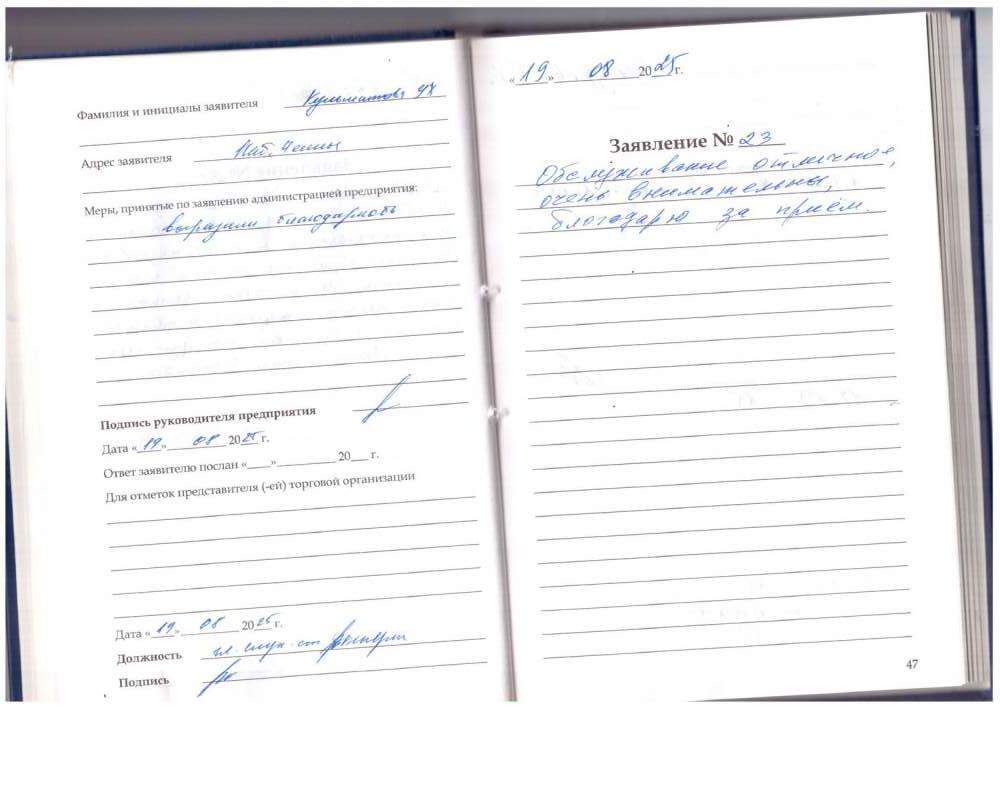 Фамилия и инициалы заявителя
Адрес заявителя Наб. Челны
Меры, принятые по заявлению администрацией предприятия:
выразили благодарность
Подпись руководителя предприятия
Дата «19» 08 2025 г.
Ответ заявителю послан «____»__________ 20___ г.
Для отметок представителя (-ей) торговой организации
Дата «19» 08 2025 г.
Должность
Подпись
«19» 08 2025г.
Заявление № 23
Обслуживание отличное,
очень внимательны,
благодарю за приём.
47